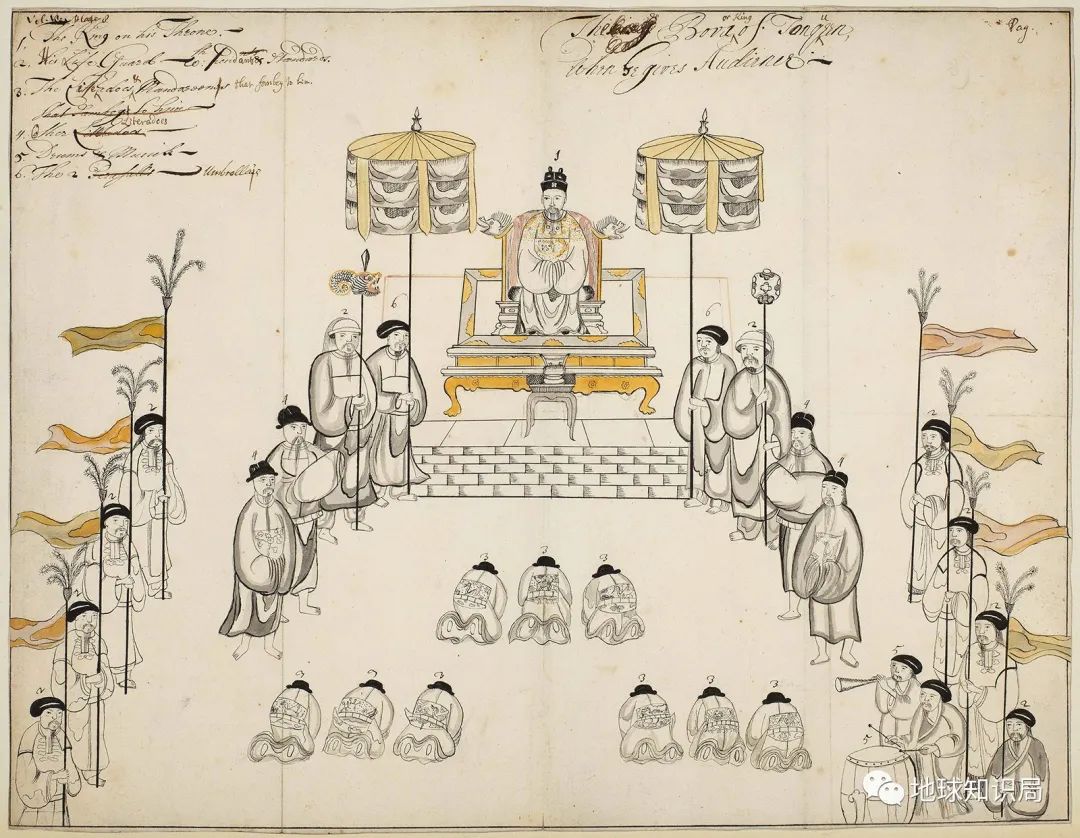 Plate 8
The Bova or King of Tonqueen
Pag.
When he gives Audience
1. The King on his Throne.
2. His Life Guard
3. The Literadoes Mandareens that
that to him
4. Other Literadoes
5 Drums & Musick
6. The 2 Umbrellas
1
6
2
6
2
4
4
4
4
2
2
2
2
2
2
2
2
3
3
3
3
3
3
3
3
3
5
5
地球知识局